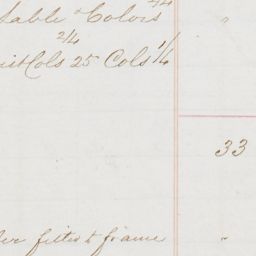 table & Colors "
2/4
Cols 25 Cols 1/4
33
fitted to frame "